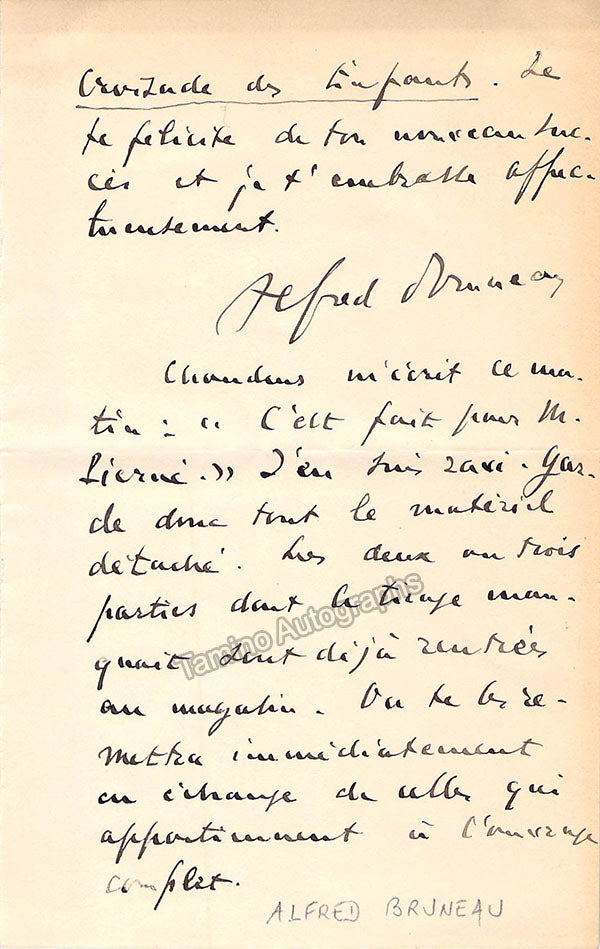 Croisade des Enfants. Je
te félicite de ton nouveau suc-
cès et je t'embrasse affec-
tueusement.
Alfred Bruneau
Choudens m'écrit ce ma-
tin : « C'est fait pour M.
Pierné.» J'en suis ravi. Gar-
de donc tout le matériel
détaché. Les deux ou trois
parties dont le tirage man-
quait sont déjà rentrées
au magasin. On te les re-
mettra immédiatement
en échange de celles qui
appartiennent à l'ouvrage
complet.
ALFRED BRUNEAU
Tamino Autographs